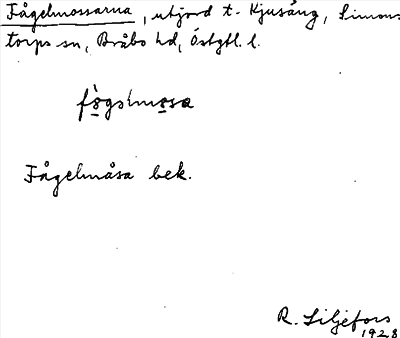 Fågelmossarna, utjord t. Kjusäng, Simons-
torps sn, Bråbo hd, Östgtl. l.
fògəlmosa
Fågelmåsa bek.
R. Liljefors
1928